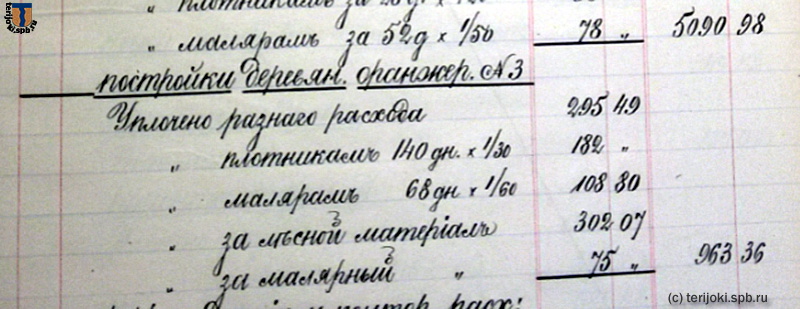 terijoki.spb.ru
„ плотникамъ за
„ малярамъ за 52д х 1/50 78 „ 5090 98
постройки деревян. оранжер. №3
Уплочено разнаго расхода 295 49
„ плотникамъ 140 дн. х 1/30 182 „
„ малярамъ 68 дн х 1/60 108 80
„ за лѣсной матеріалъ 302 07
„ за малярный „ 75 „ 963 36
расх:
(c) terijoki.spb.ru